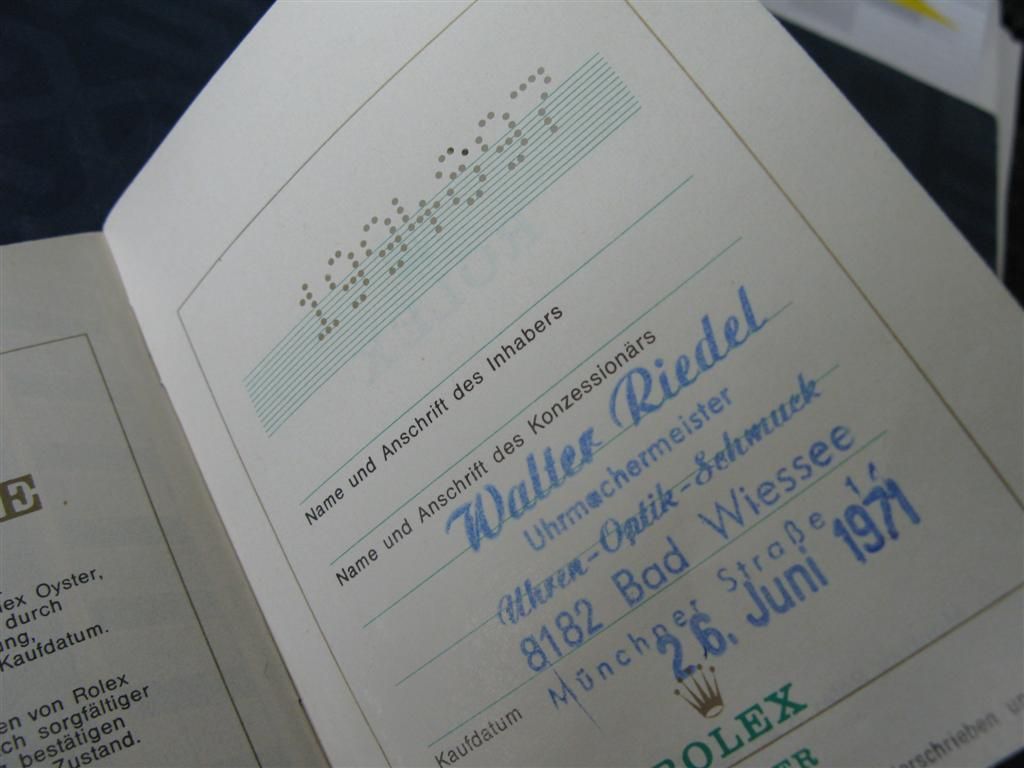 E
lex Oyster,
durch
ung,
Kaufdatum.
en von Rolex
ch sorgfältiger
bestätigen
Zustand.
Name und Anschrift des Inhabers
Name und Anschrift des Konzessionärs
Walter Riedel
Uhrmachermeister
Uhren-Optik-Schmuck
8182 Bad Wiessee
Münchner Straße
26. Juni 1971
Kaufdatum
ROLEX
ER
erschrieben un